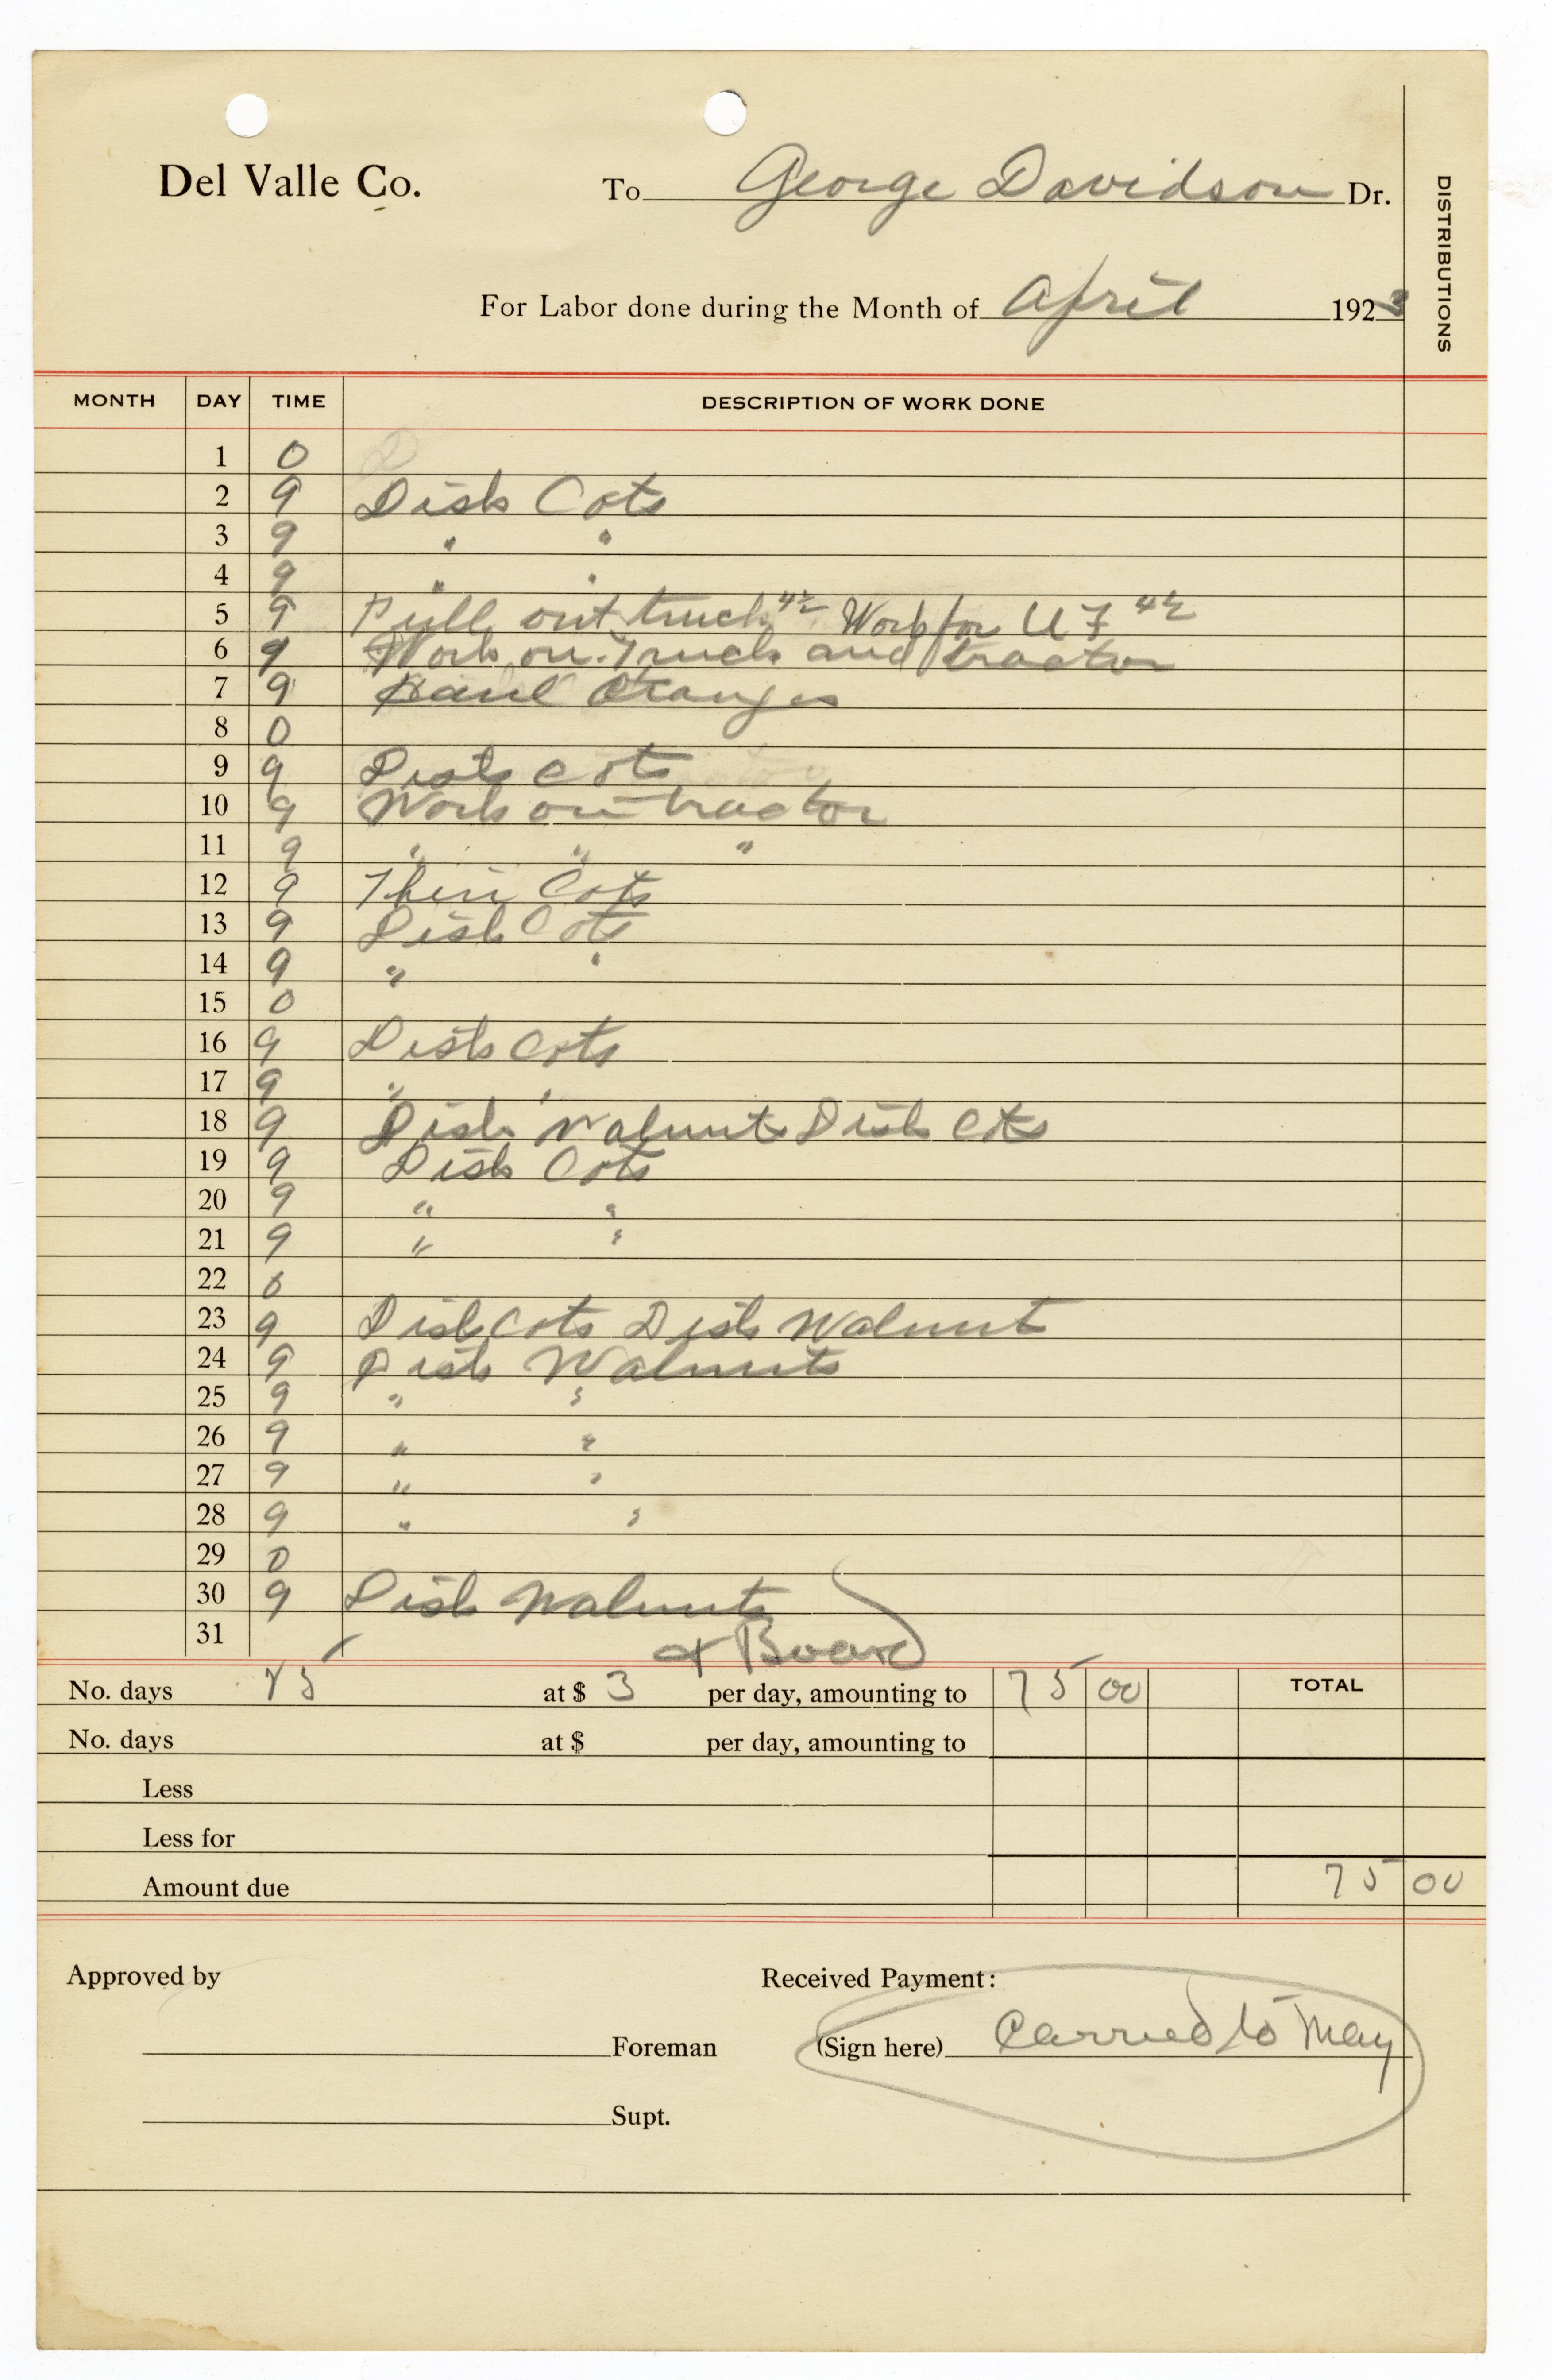 Del Valle Co.
To George Davidson Dr.
DISTRIBUTIONS
For Labor done during the Month of April 1923
MONTH DAY TIME DESCRIPTION OF WORK DONE
1 0
2 9 Disk Cots
3 9 " "
4 9 " "
5 9 Pull out truck 4½ Work for U F 4½
6 9 Work on Truck and tractor
7 9 Haul Oranges
8 0
9 9 Disk Cots
10 9 Work on tractor
11 9 " " "
12 9 Thin Cots
13 9 Disk Cots
14 9 " "
15 0
16 9 Disk Cots
17 9 " "
18 9 Disk Walnuts Disk Cots
19 9 Disk Cots
20 9 " "
21 9 " "
22 0
23 9 Disk Cots Disk Walnut
24 9 Disk Walnuts
25 9 " "
26 9 " "
27 9 " "
28 9 " "
29 0
30 9 Disk Walnuts
31 + Board
No. days 25 at $ 3 per day, amounting to 75 00 TOTAL
No. days at $ per day, amounting to
Less
Less for
Amount due 75 00
Approved by Received Payment:
Foreman (Sign here) Carried to May
Supt.